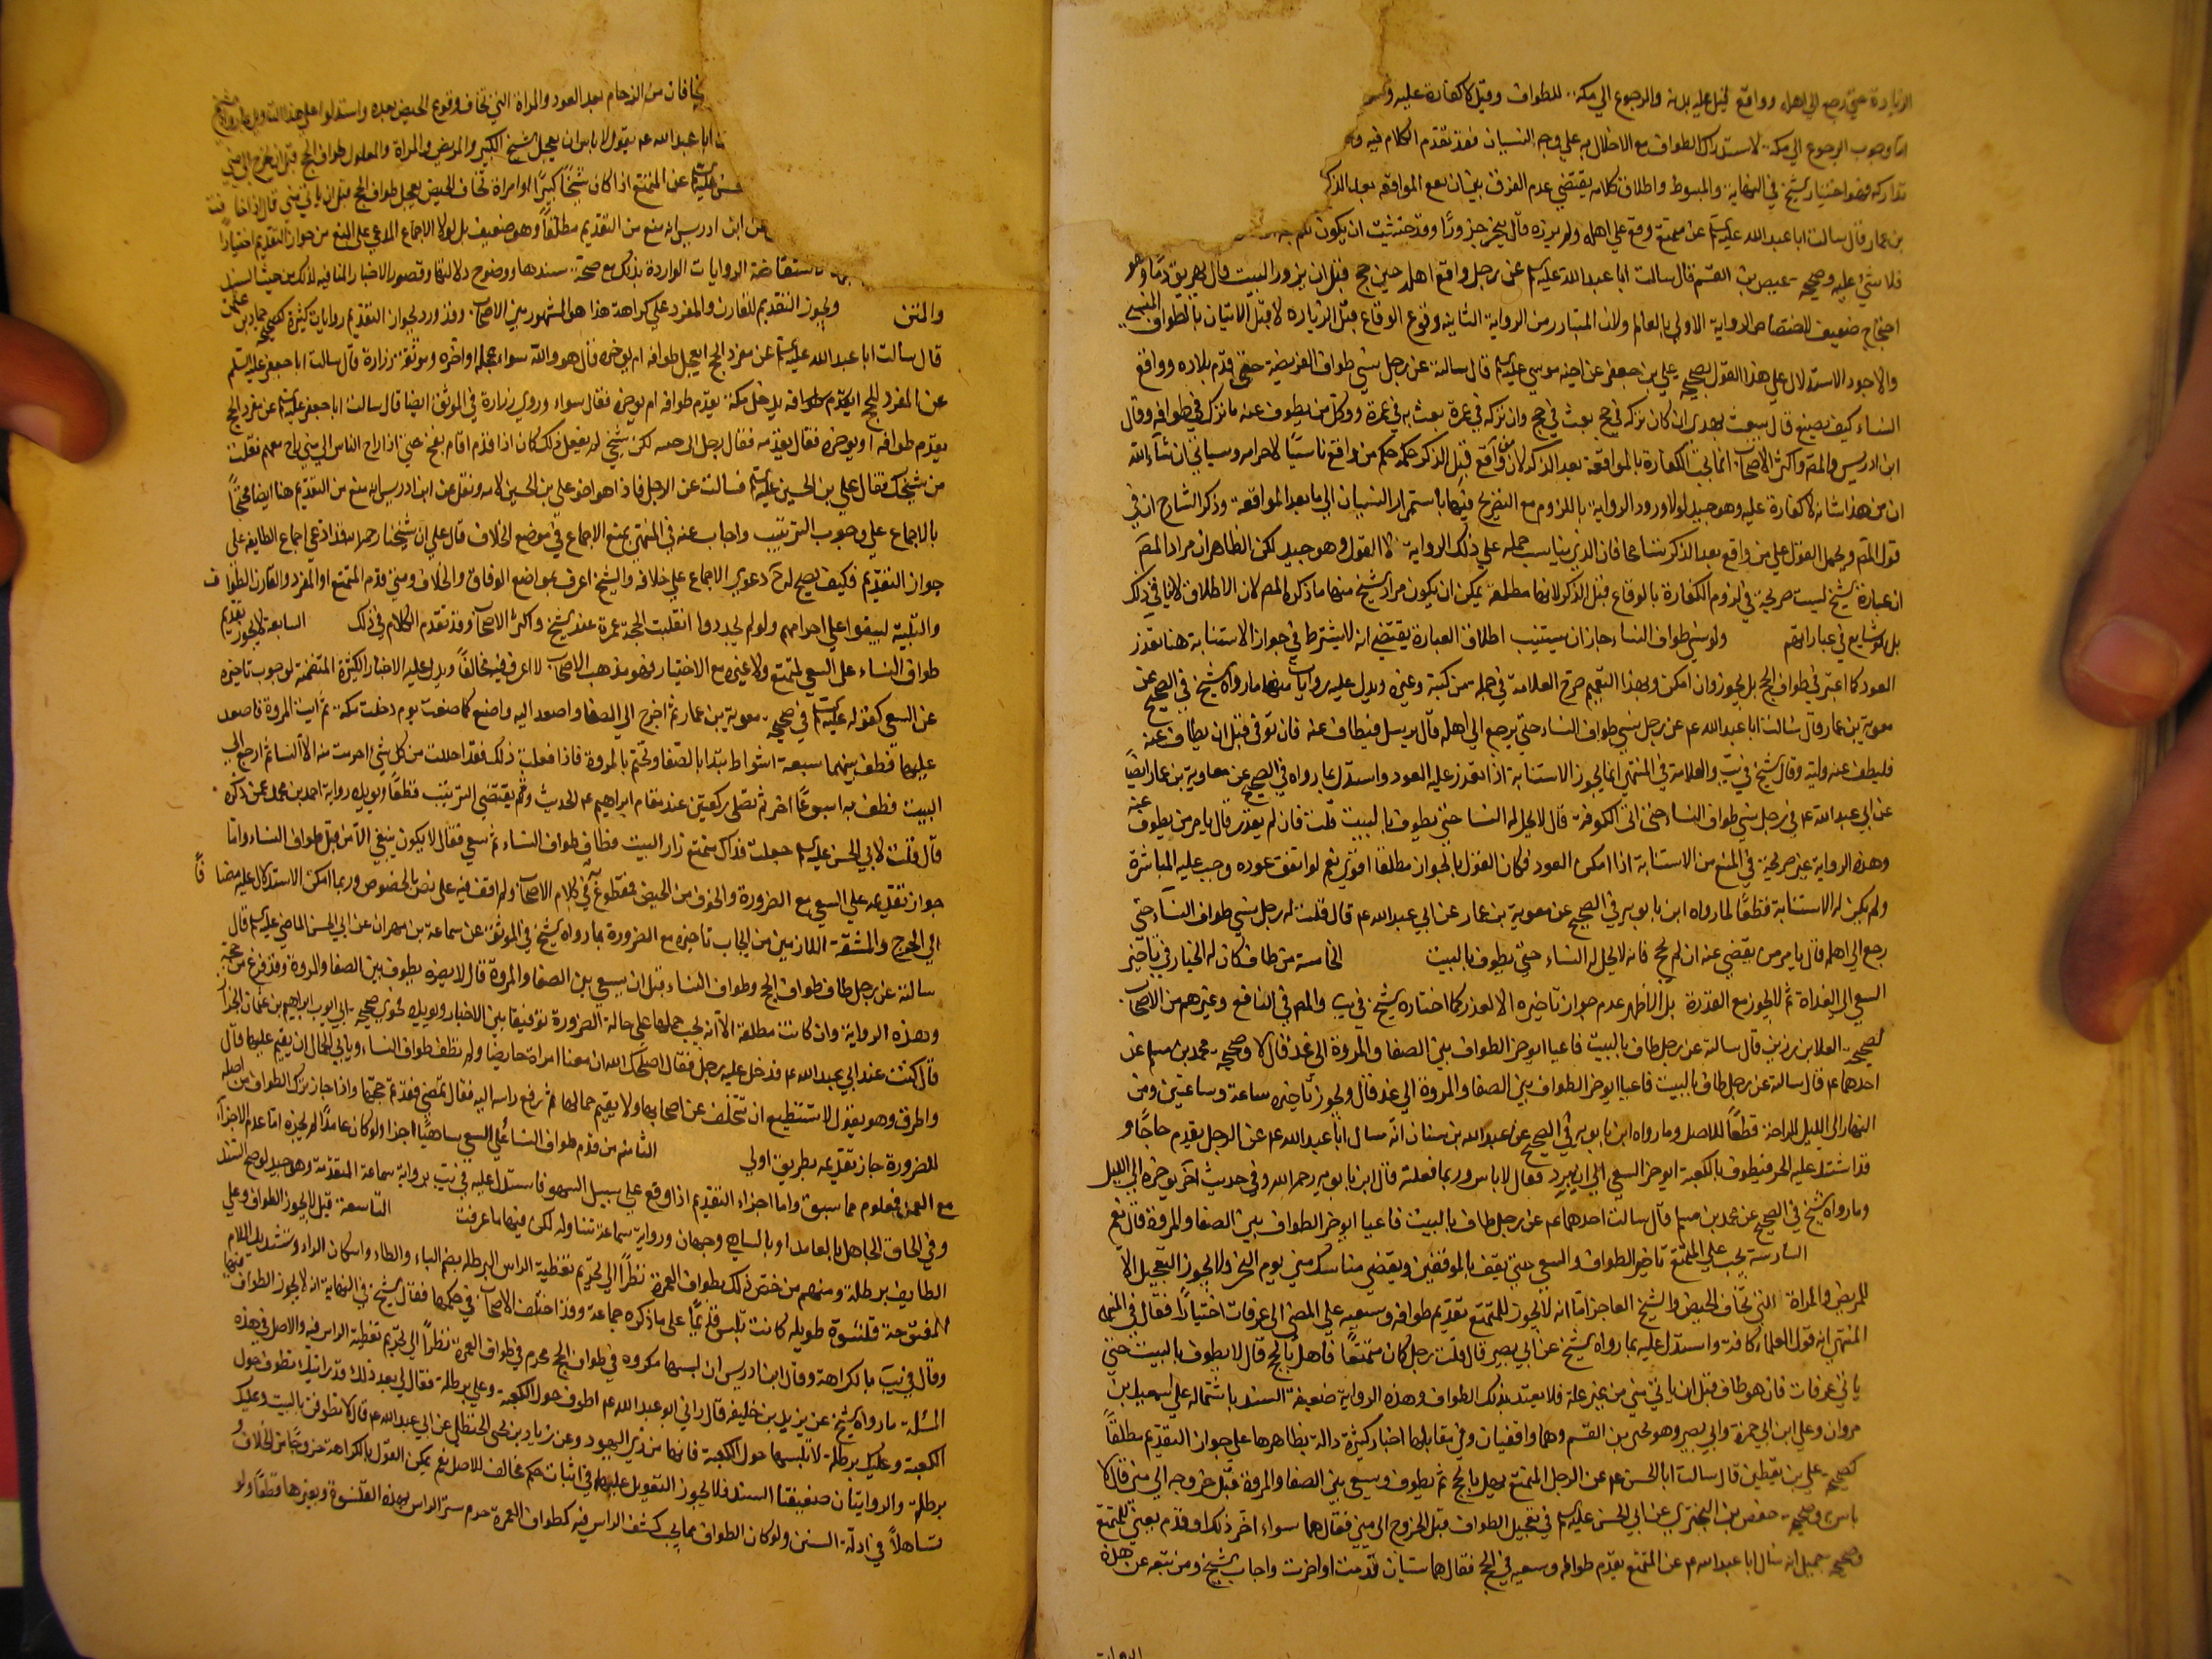 الزيارة حتى رجع الى اهله وواقع قيل عليه بدنة والرجوع الى مكة للطواف وقيل لا كفارة عليه
اما وجوب الرجوع الى مكة لاستدراك الطواف مع الاخلال به على وجه النسيان فقد تقدم الكلام فيه
تداركه فهو اختيار الشيخ في النهاية والمبسوط واطلاق كلامه يقتضي عدم الفرق بين ان يقع المواقعة بعد الذكر
بن عمار قال سالت ابا عبد الله عليه السلم عن متمتع وقع على اهله ولم يزره قال ينحر جزورا وقد خشيت ان يكون ثلم
فلا شيء عليه وصحيحة عيص بن القسم قال سالت ابا عبد الله عليه السلم عن رجل واقع اهله حين ضحى قبل ان يزور البيت قال يهريق دما وهو
احتجاج ضعيف لاختصاص الرواية الاولى بالعالم ولان المتبادر من الرواية الثانية وقوع الوقاع قبل الزيارة لا قبل الاتيان بالطواف المنسي
والاجود الاستدلال على هذا القول بصحيحة علي بن جعفر عن اخيه موسى عليه السلم قال سالته عن رجل نسي طواف الفريضة حتى قدم بلاده وواقع
النساء كيف يصنع قال يبعث بهدي ان كان تركه في حج بعث في حج وان تركه في عمرة بعث به في عمرة ووكل من يطوف عنه ما تركه في طوافه وقال
ابن ادريس والمص واكثر الاصحاب انما تجب الكفارة بالمواقعة بعد الذكر لان من واقع قبل الذكر حكمه حكم من واقع ناسيا لاحرامه وسياتي ان شاء الله
ان من هذا شانه لا كفارة عليه وهو جيد لولا ورود الرواية باللزوم مع التصريح فيها باستمرار النسيان الى ما بعد المواقعة وذكر الشارح ان في
قول المص ويحمل القول على من واقع بعد الذكر تسامحا فان الذي يناسب حمله على ذلك الرواية لا القول وهو جيد لكن الظاهر ان مراد المص
ان عبارة الشيخ ليست صريحة في لزوم الكفارة بالوقاع قبل الذكر لانها مطلقة يمكن ان يكون مراد الشيخ منها ما ذكره المص لان الاطلاق لا ينافي ذلك
بل هو شايع في عباراتهم ولو نسي طواف النساء جاز ان يستنيب اطلاق العبارة يقتضي انه لا يشترط في جواز الاستنابة هنا تعذر
العود كما اعتبر في طواف الحج بل يجوز وان امكن وبهذا التعميم صرح العلامة في جملة من كتبه وغيره ويدل عليه روايات منها ما رواه الشيخ في الصحيح عن
معوية بن عمار قال سالت ابا عبد الله ع عن رجل نسي طواف النساء حتى يرجع الى اهله قال يرسل فيطاف عنه فان توفى قبل ان يطاف عنه
فليطف عنه وليه وقال الشيخ في يب والعلامة في المنتهى انما يجوز الاستنابة اذا تعذر عليه العود واستدل بما رواه في الصحيح عن معاوية بن عمار ايضا
عن ابي عبد الله ع في رجل نسي طواف النساء حتى اتى الكوفة قال لا يحل له النسا حتى يطوف بالبيت قلت فان لم يقدر قال يامر من يطوف عنه
وهذه الرواية غير صريحة في المنع من الاستنابة اذا امكن العود فكان القول بالجواز مطلقا اقوى نعم لو اتفق عوده وجب عليه المباشرة
ولم يكن له الاستنابة قطعا لما رواه ابن بابويه في الصحيح عن معوية بن عمار عن ابي عبد الله ع قال قلت له رجل نسي طواف النساء حتى
رجع الى اهله قال يامر من يقضي عنه ان لم يحج فانه لا يحل له النساء حتى يطوف بالبيت الخامسة من طاف كان له الخيار في تاخير
السعي الى الغداة ثم لا يجوز مع القدرة بل الاظهر عدم جواز تاخيره الا لعذر كما اختاره الشيخ في يب والمص في النافع وغيرهم من الاصحاب
لصحيحة العلا بن رزين قال سالته عن رجل طاف بالبيت فاعيا ايوخر الطواف بين الصفا والمروة الى غد قال لا وصحيحة محمد بن مسلم عن
احدهما ع قال سالته عن رجل طاف بالبيت فاعيا ايوخر الطواف بين الصفا والمروة الى غد قال لا ويجوز تاخيره ساعة وساعتين ومن
النهار الى الليل للراحة قطعا للاصل وما رواه ابن بابويه في الصحيح عن عبد الله بن سنان انه سال ابا عبد الله ع عن الرجل يقدم حاجا و
قد اشتد عليه الحر فيطوف بالكعبة ايوخر السعي الى ان يبرد فقال لا باس به وربما فعلته قال ابن بابويه رحمه الله وفي حديث آخر يوخره الى الليل
وما رواه الشيخ في الصحيح عن محمد بن مسلم قال سالت احدهما ع عن رجل طاف بالبيت فاعيا ايوخر الطواف بين الصفا والمروة قال نعم
السادسة يجب على المتمتع تاخير الطواف والسعي حتى يقف بالموقفين ويقضي مناسك منى يوم النحر ولا يجوز التعجيل الا
للمريض والمراة التي تخاف الحيض والشيخ العاجز اما انه لا يجوز للمتمتع تقديم طوافه وسعيه على المضي الى عرفات اختيارا فقال في
المنتهى انه قول العلماء كافة واستدل عليه بما رواه الشيخ عن ابي بصير قال قلت رجل كان متمتعا فاهل بالحج قال لا يطوف بالبيت حتى
ياتي عرفات فان هو طاف قبل ان ياتي منى من غير علة فلا يعتد بذلك الطواف وهذه الرواية ضعيفة السند باشتماله على اسمعيل بن
مروان وعلي ابن ابي حمزة وابي بصير وهو يحيى بن القسم وهما واقفيان وفي مقابلها اخبار كثيرة دالة بظاهرها على جواز التقديم مطلقا
كصحيحة علي بن يقطين قال سالت ابا الحسن ع عن الرجل المتمتع يهل بالحج ثم يطوف ويسعى بين الصفا والمروة قبل خروجه الى منى قال لا
باس وصحيحة حفص بن البختري عن ابي الحسن عليه السلم في تعجيل الطواف قبل الخروج الى منى فقال هما سواء اخر ذلك او قدم يعني للمتمتع
وصحيحة جميل انه سال ابا عبد الله ع عن المتمتع يقدم طوافه وسعيه في الحج فقال هما سيان قدمت او اخرت واجاب الشيخ ومن تبعه عن هذه
الروايات
من الزحام بعد العود والمراة التي تخاف وقوع الحيض بعده واستدلوا على هذا التاويل بما رواه الشيخ
ابا عبد الله ع يقول لا باس ان يعجل الشيخ الكبير والمريض والمراة والمعلول طواف الحج قبل ان يخرج الى منى
عليه السلم عن المتمتع اذا كان شيخا كبيرا او امراة تخاف الحيض يعجل طواف الحج قبل ان ياتي منى قال
ابن ادريس انه منع من التقديم مطلقا وهو ضعيف بل لولا الاجماع المدعى على المنع من جواز التقديم اختيارا
لاستفاضة الروايات الواردة بذلك مع صحة سندها ووضوح دلالتها وقصور الاخبار المنافية لذلك من حيث السند
والمتن ويجوز التقديم للقارن والمفرد على كراهة هذا هو المشهور بين الاصحاب وقد ورد بجواز التقديم روايات كثيرة كصحيحة حماد بن عثمن
قال سالت ابا عبد الله عليه السلم عن مفرد الحج ايعجل طوافه ام يوخره قال هو والله سواء عجله او اخره وموثقة زرارة قال سالت ابا جعفر عليه السلم
عن المفرد للحج يدخل مكة يقدم طوافه ام يوخره فقال سواء وروى زرارة في الموثق ايضا قال سالت ابا جعفر عليه السلم عن مفرد الحج
يقدم طوافه او يوخره فقال يقدمه فقال رجل الى جنبه لكن شيخي لم يفعل ذلك كان اذا قدم اقام بفخ حتى اذا راح الناس الى منى راح معهم فقلت
من شيخك فقال علي بن الحسين عليه السلم فسالت عن الرجل فاذا هو اخو علي بن الحسين لامه ونقل عن ابن ادريس انه منع من التقديم هنا ايضا محتجا
بالاجماع على وجوب الترتيب واجاب عنه في المنتهى بمنع الاجماع في موضع الخلاف قال على ان شيخنا رحمه الله قد ادعى اجماع الطايفة على
جواز التقديم فكيف يصح له ح دعوى الاجماع على خلافه والشيخ اعرف بمواضع الوفاق والخلاف ومتى قدم المتمتع او المفرد والقارن الطواف
والتلبية ليبقوا على احرامهم ولو لم يجددوا انقلبت الحجة عمرة عند الشيخ واكثر الاصحاب وقد تقدم الكلام في ذلك السابعة لا يجوز تقديم
طواف النساء على السعي لمتمتع ولا غيره مع الاختيار وهو مذهب الاصحاب لا اعرف فيه مخالفا ويدل عليه الاخبار الكثيرة المتضمنة لوجوب تاخيره
عن السعي كقوله عليه السلم في صحيحة معوية بن عمار ثم اخرج الى الصفا واصعد اليه واصنع كما صنعت يوم دخلت مكة ثم ائت المروة فاصعد
عليها فطف بينهما سبعة اشواط تبدا بالصفا وتختم بالمروة فاذا فعلت ذلك فقد احللت من كل شيء احرمت منه الا النسا ثم ارجع الى
البيت فطف به اسبوعا اخر ثم تصلي ركعتين عند مقام ابراهيم ع الحديث وثم يقتضي الترتيب قطعا ويؤيده رواية احمد بن محمد عمن ذكره
قال قلت لابي الحسن عليه السلم جعلت فداك متمتع زار البيت فطاف طواف النساء ثم سعى فقال لا يكون سعي الا من قبل طواف النساء واما
جواز تقديمه على السعي مع الضرورة والخوف من الحيض فمقطوع به في كلام الاصحاب ولم اقف فيه على نص بالخصوص وربما امكن الاستدلال عليه مضافا
الى الحرج والمشقة اللازمين من ايجاب تاخيره مع الضرورة بما رواه الشيخ في الموثق عن سماعة بن مهران عن ابي الحسن الماضي عليه السلم قال
سالته عن رجل طاف طواف الحج وطواف النساء قبل ان يسعى بين الصفا والمروة قال لا يضره يطوف بين الصفا والمروة وقد فرغ من حجه
وهذه الرواية وان كانت مطلقة الا انه يجب حملها على حالة الضرورة توفيقا بين الاخبار ويؤيده فحوى صحيحة ابي ايوب ابراهيم بن عثمان الخزاز
قال كنت عند ابي عبد الله ع فدخل عليه رجل فقال اصلحك الله ان معنا امراة حايضا ولم تطف طواف النساء ويابى الجمال ان يقيم عليها قال
واطرق وهو يقول لا تستطيع ان تتخلف عن اصحابها ولا يقيم جمالها ثم رفع راسه اليه فقال تمضي فقد تم حجها واذا جاز ترك الطواف من اصله
للضرورة جاز تقديمه بطريق اولى الثامنة من قدم طواف النسا على السعي ساهيا اجزا ولو كان عامدا لم يجزه اما عدم الاجزاء
مع العمد فمعلوم مما سبق واما اجزاء التقديم اذا وقع على سبيل السهو فاستدل عليه في يب برواية سماعة المتقدمة وهو جيد لو صح السند
وفي الحاق الجاهل بالعامد او بالساهي وجهان ورواية سماعة تتناوله لكن فيها ما عرفت التاسعة قيل لا يجوز الطواف وعلى
الطايف برطلة ومنهم من خص ذلك بطواف العمرة نظرا الى تحريم تغطية الراس البرطلة بضم الباء والطاء واسكان الراء وتشديد اللام
المفتوحة قلنسوة طويلة كانت تلبس قديما على ما ذكره جماعة وقد اختلف الاصحاب في حكمها فقال الشيخ في النهاية انه لا يجوز الطواف فيها
وقال في يب بالكراهة وقال ابن ادريس ان لبسها مكروه في طواف الحج محرم في طواف العمرة نظرا الى تحريم تغطية الراس فيه والاصل في هذه
المسئلة ما رواه الشيخ عن يزيد بن خليفة قال راني ابو عبد الله ع اطوف حول الكعبة وعلي برطلة فقال لي بعد ذلك قد رايتك تطوف حول
الكعبة وعليك برطلة لا تلبسها حول الكعبة فانها من زي اليهود وعن زياد بن يحيى الحنظلي عن ابي عبد الله ع قال لا تطوفن بالبيت وعليك
برطلة والروايتان ضعيفتا السند فلا يجوز التعويل عليهما في اثبات حكم مخالف للاصل نعم يمكن القول بالكراهة خروجا من الخلاف و
تساهلا في ادلة السنن ولو كان الطواف مما يجب كشف الراس فيه كطواف العمرة حرم ستر الراس بهذه القلنسوة وبغيرها قطعا ولو